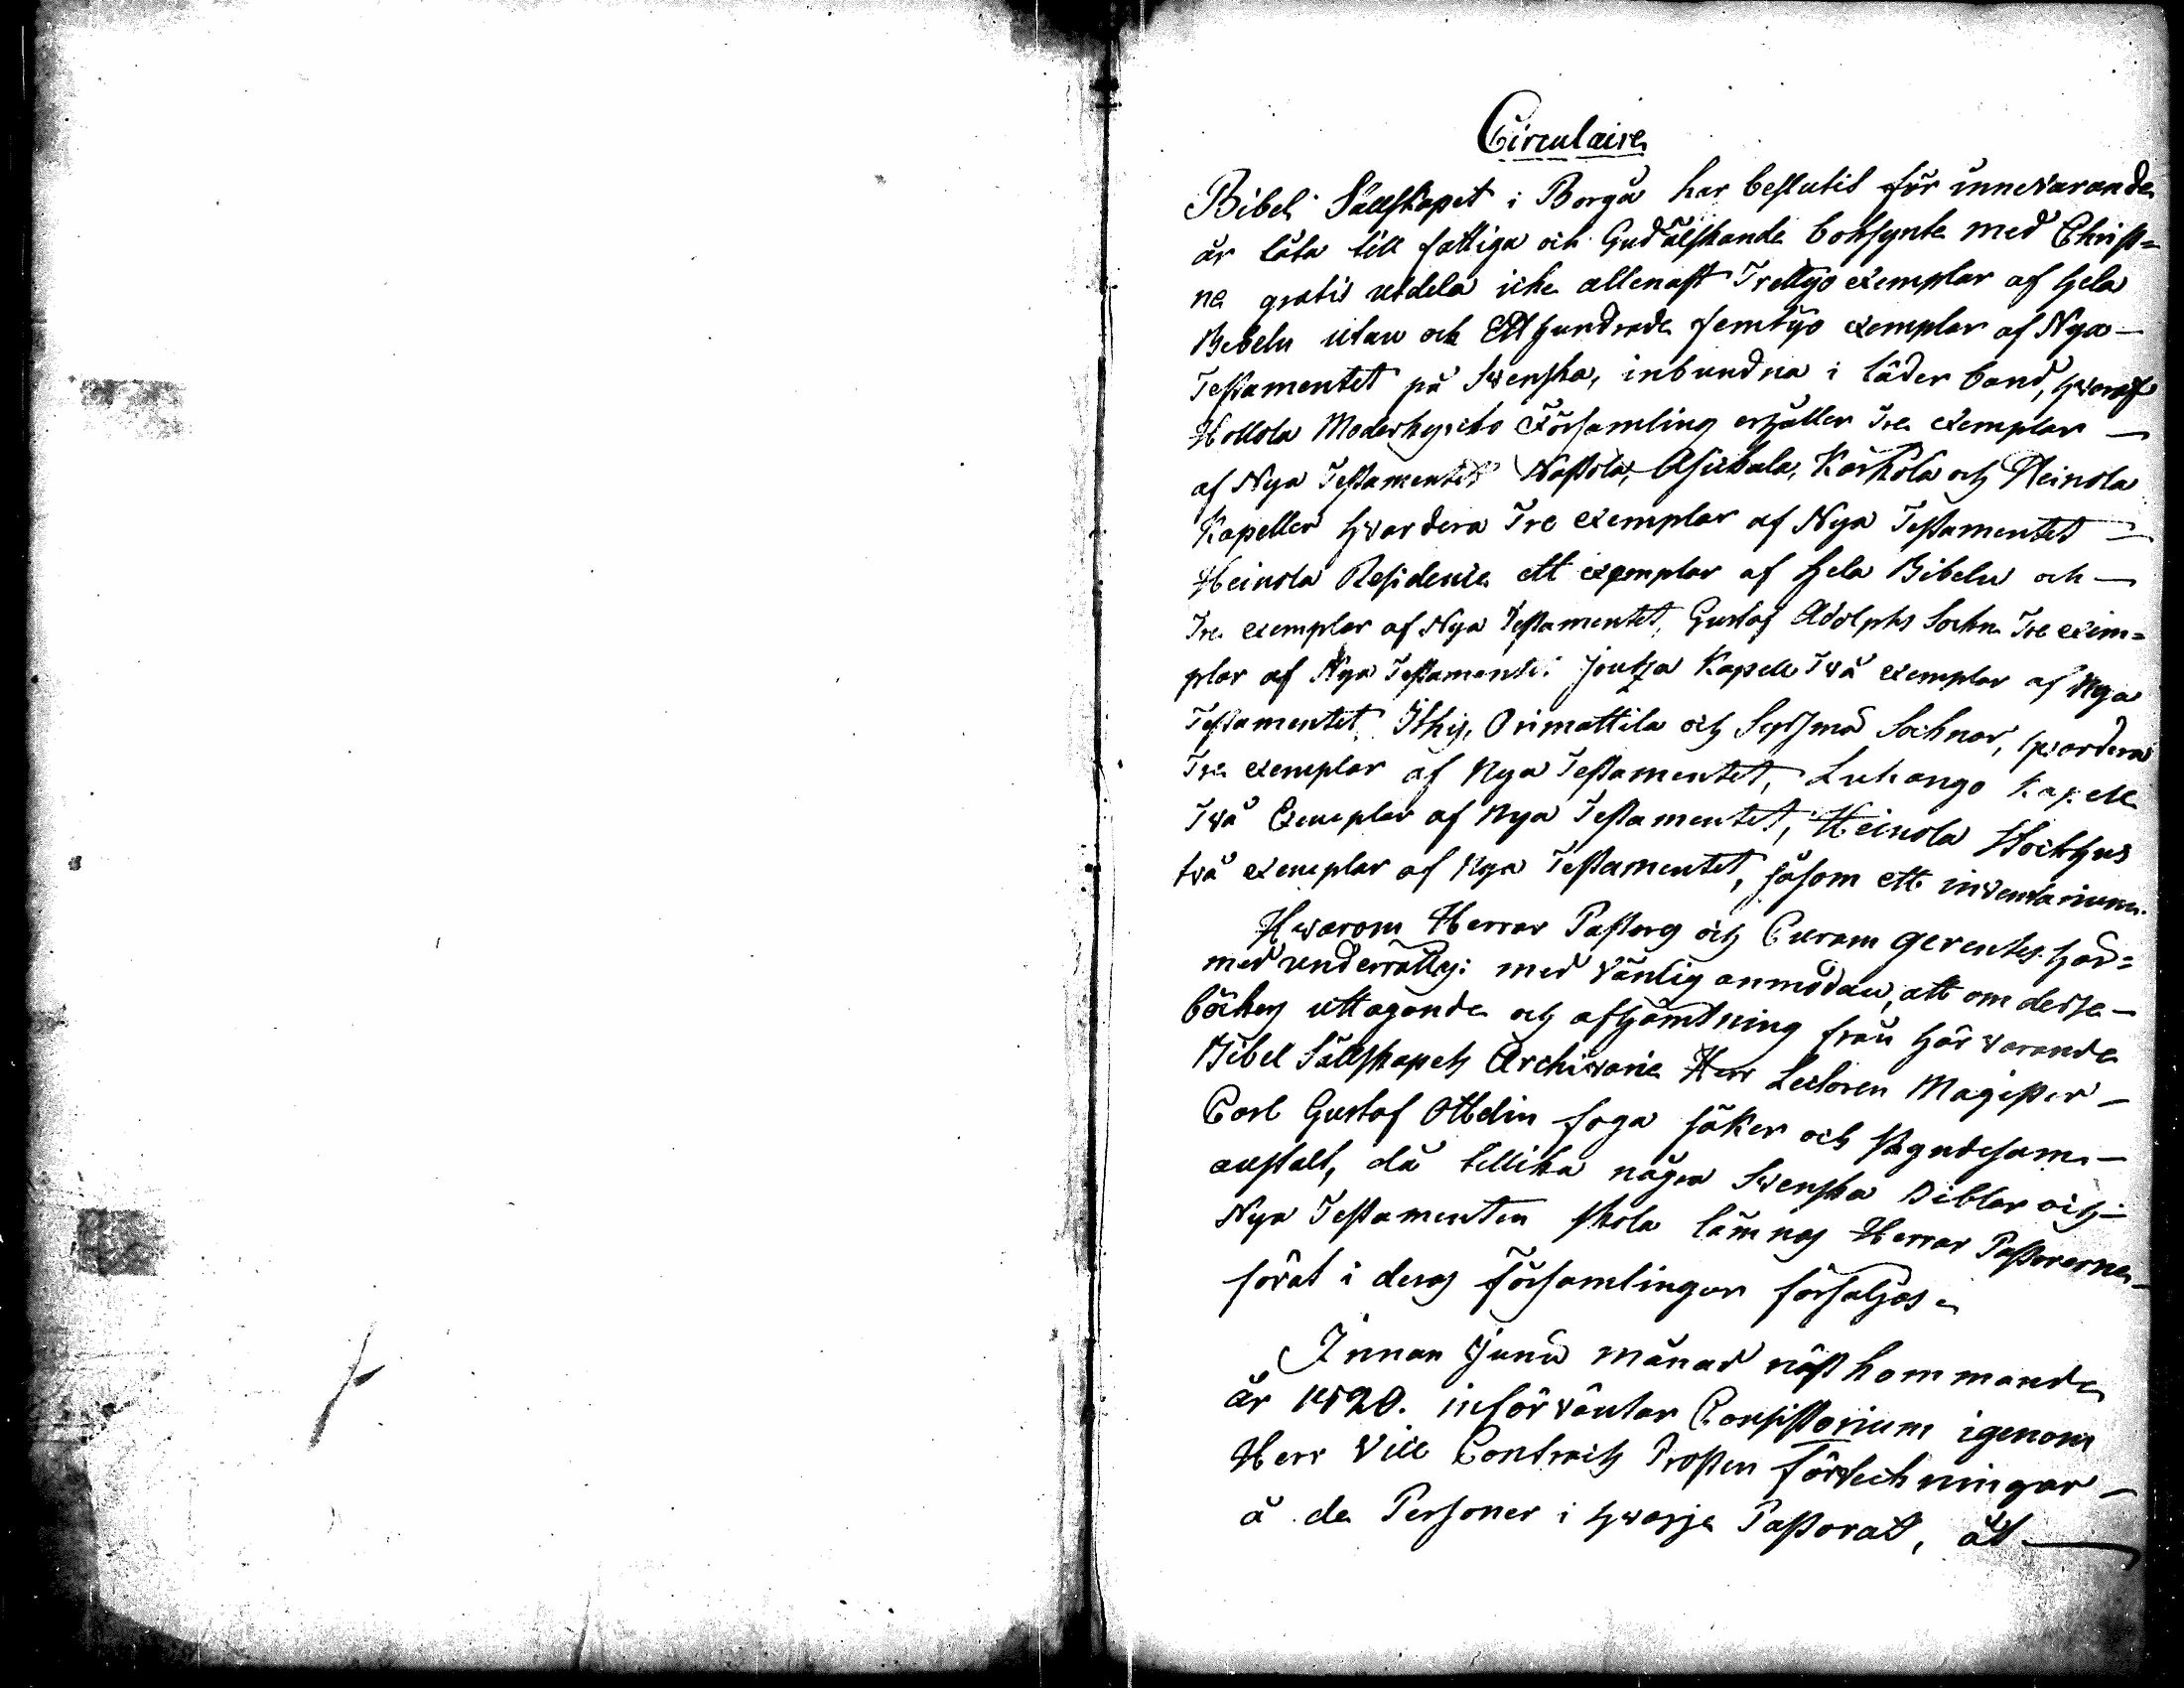 Circulaire
Bibel Sällskapet i Borgå har beslutit för innevarande
år låta till fattiga och Gudälskande boksynte med Christ-
na gratis utdela icke allenast Trettijo exemplar af hela
Bibeln utan och Etthundrade femtijo exemplar af Nya
Testamentet på Svenska, inbundna i läder band, hvaraf
Hollola Moderkyrcko Församling erhåller Tre exemplar
af Nya Testamentet Nastola, Asickala, Kärkölä och Heinola
Kapeller hvardera Tre exemplar af Nya Testamentet
Heinola Residence ett exemplar af hela Bibeln och
Tre exemplar af Nya Testamentet, Gustaf Adolphs Sockn Tre exem-
plar af Nya Testamente: Joutza Kapell Två exemplar af Nya
Testamentet Ithis, Orimattila och Sysmä Socknar, hvardera
Tre exemplar af Nya Testamentet, Luhango Kapell
Två Exemplar af Nya Testamentet, Heinola
två exemplar af Nya Testamentet, såsom ett inventarium.
Hvarom Herrar Pastorer och Curam gerentes här-
med underrättas: med vänlig anmodan, att om dessa
böckers uttagande och afhämtning från härvarande
Bibel Sällskapets Archivarie Herr Lectoren Magister
Carl Gustaf Ottelin foga säker och skyndesam
anstalt, då tillika några Svenska Biblar och
Nya Testamenten skola lämnas Herrar Pastorerne
förat i deras församlingar försäljas.
Innan Junii månad näst kommande
år 1820. införväntar Consistorium igenom
Herr Vice Contracts Prosten förteckningar
å de Personer i hvarje Pastorat, åt